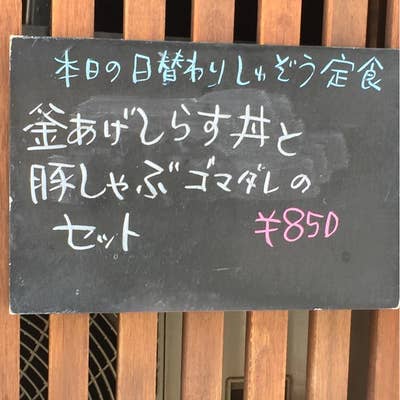 本日の日替わりしゅぞう定食
釜あげしらす丼と
豚しゃぶゴマダレの
セット ¥850